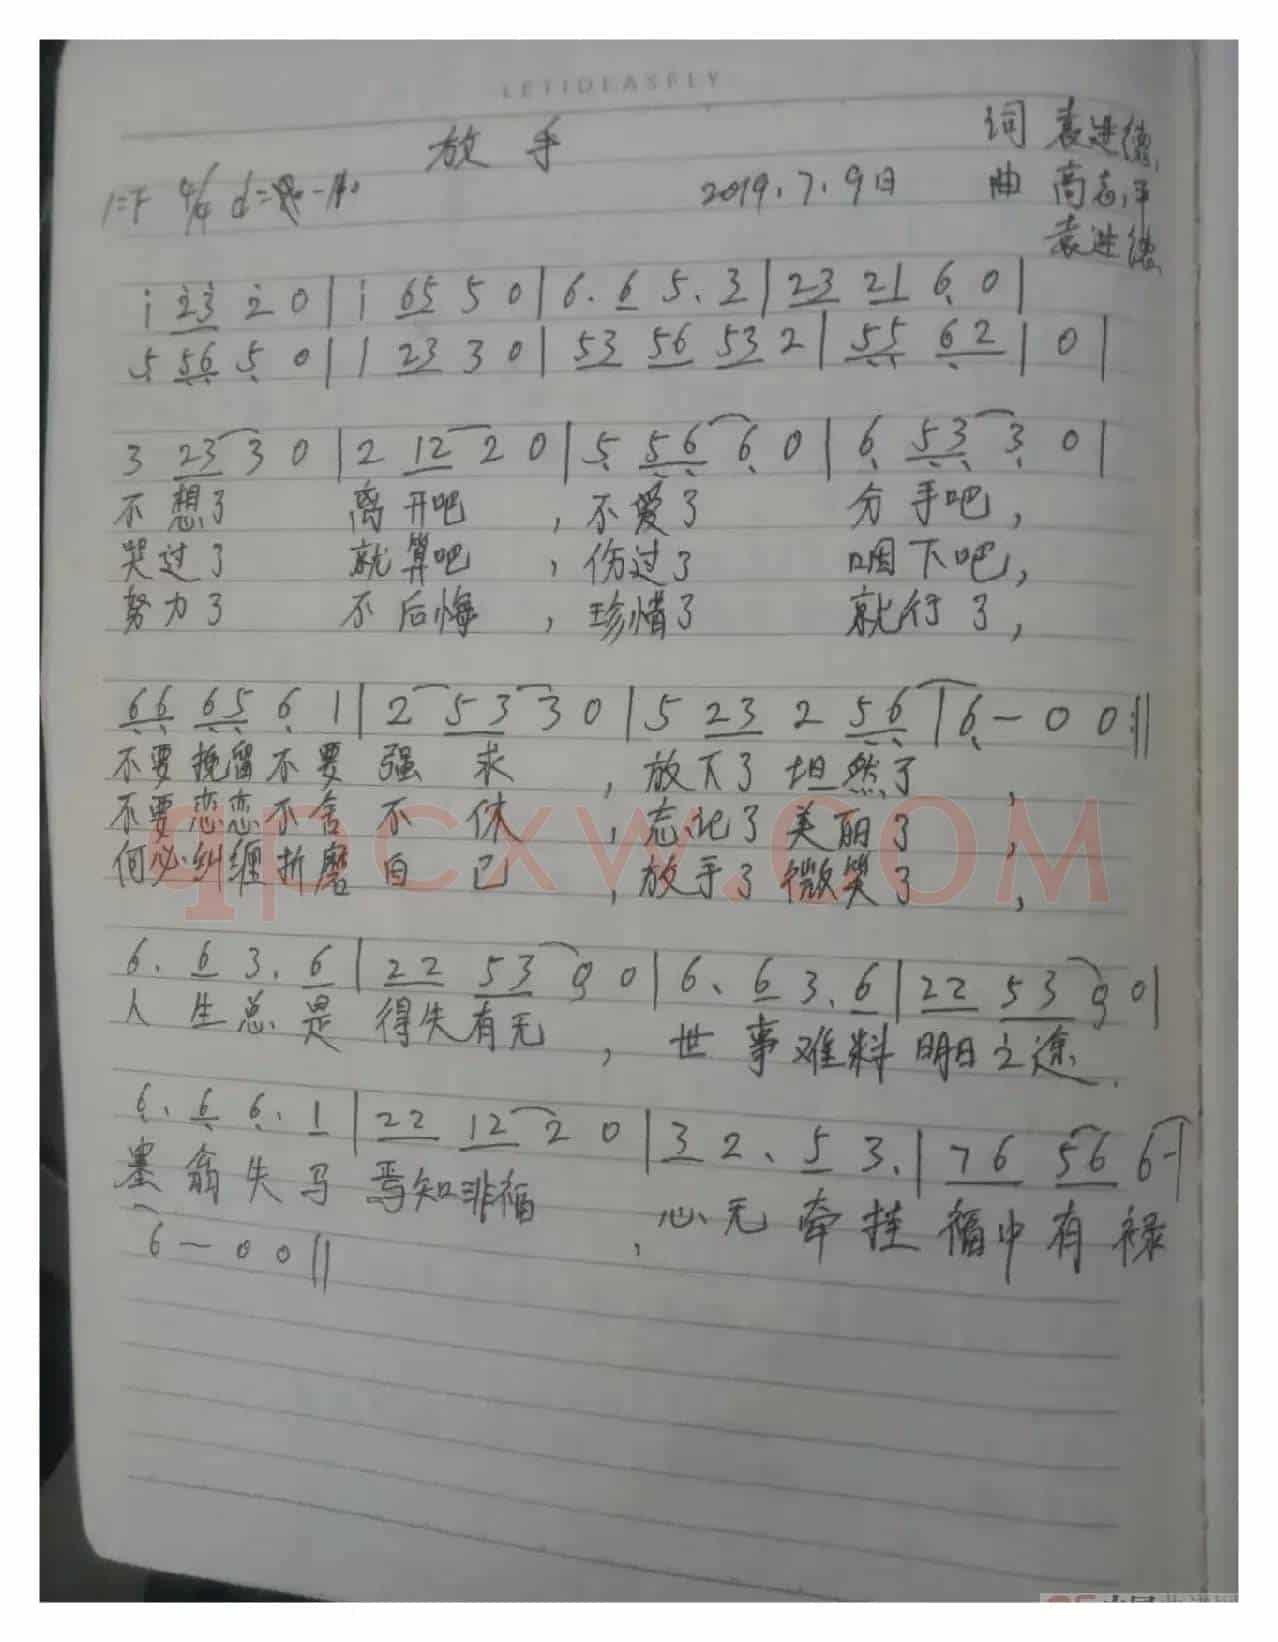 LETIDEASFLY
放手 词 袁进德
1=F 4/4 2019.7.9日 曲 高志平
袁进德
i 2̇3̇ 2̇ 0 | i 65 5 0 | 6. 6 5. 3 | 23 21 6̣ 0 |
5̣ 5̣6̣ 5̣ 0 | 1 23 3 0 | 53 56 53 2 | 5̣5̣ 6̣2 | 0 |
3 23 3 0 | 2 12 2 0 | 5̣ 5̣6̣ 6̣ 0 | 6̣ 5̣3̣ 3̣ 0 |
不想了 离开吧 , 不爱了 分手吧 ,
哭过了 就算吧 , 伤过了 咽下吧 ,
努力了 不后悔 , 珍惜了 就行了 ,
6̣6̣ 6̣5̣ 6̣ 1 | 2 53 3 0 | 5 23 2 5̣6̣ | 6̣ - 0 0 :||
不要挽留不要强求 , 放下了坦然了 ,
不要恋恋不舍不休 , 忘记了美丽了 ,
何必纠缠折磨自己 , 放手了微笑了 ,
qpcxw.COM
6. 6 3. 6 | 22 53 0 0 | 6. 6 3. 6 | 22 53 0 0 |
人生总是得失有无 , 世事难料明日之途 .
6̣. 6̣ 6̣. 1 | 22 12 2 0 | 3 2. 5 3. | 76 56 6 - |
塞翁失马焉知非福 , 心无牵挂福中有禄
6 - 0 0 ||